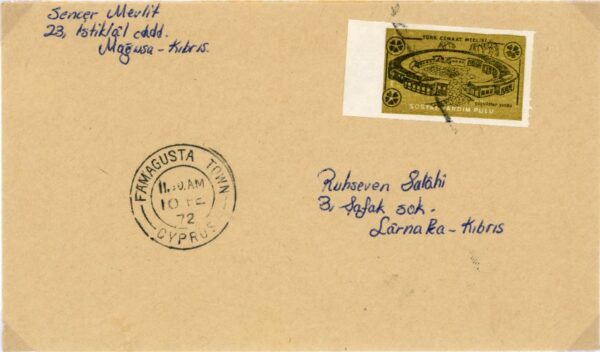 Sencer Mevlit
23, Istiklâl Cadd.
Mağusa - Kıbrıs.
TÜRK CEMAAT MECLİSİ
SOSYAL YARDIM PULU
FAMAGUSTA TOWN
11.30 AM
10 FE
72
CYPRUS
Ruhseven Salâhi
3, Şafak sok.
Larnaka - Kıbrıs